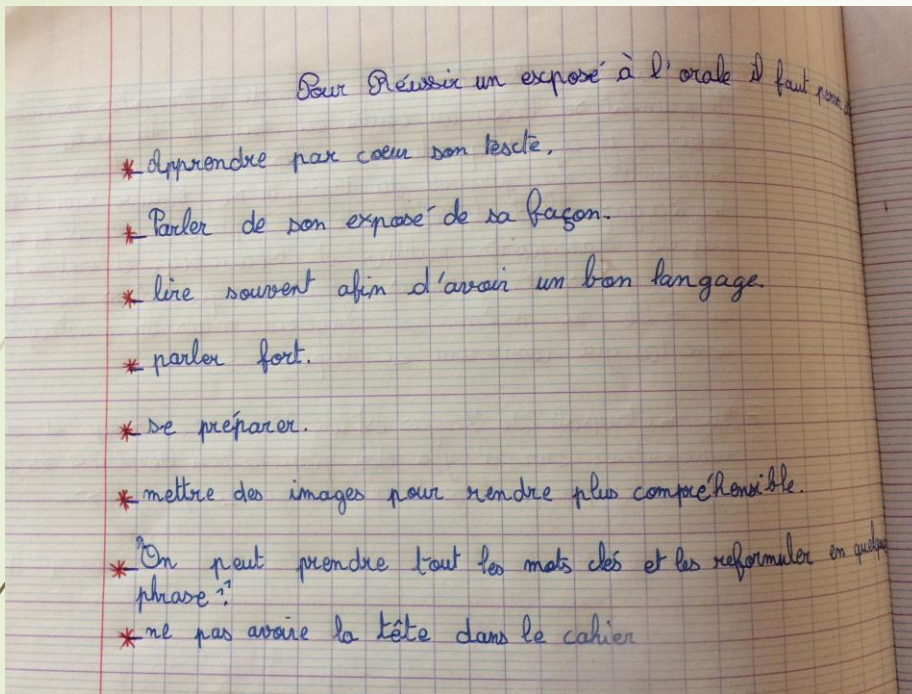 Pour Réussir un exposé à l'orale il faut
* Apprendre par coeur son texte.
* Parler de son exposé de sa façon.
* lire souvent afin d'avoir un bon langage.
* parler fort.
* se préparer.
* mettre des images pour rendre plus compréhensible.
* "On peut prendre tout les mots clés et les reformuler en
phrase"?
* ne pas avoire la tête dans le cahier